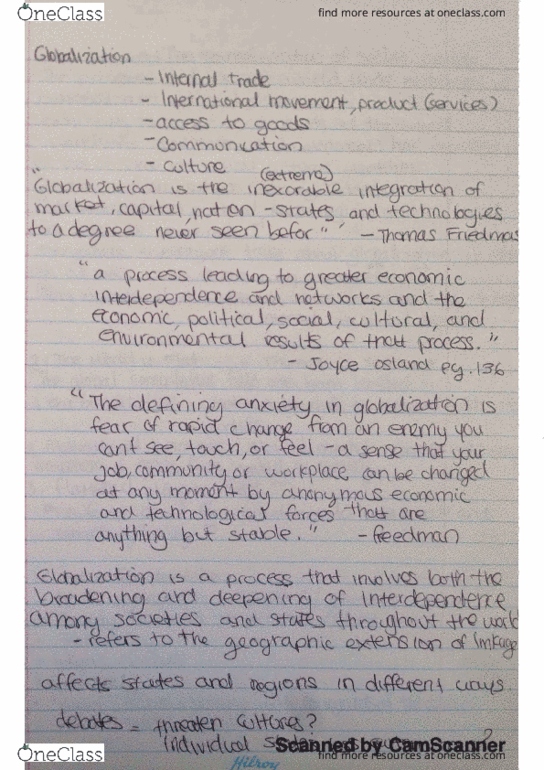 OneClass
find more resources at oneclass.com
Globalization
- Internal trade
- International movement, product (services)
- access to goods
- Communication
- Culture
(extreme)
"Globalization is the inexorable integration of
market, capital, nation - states and technologies
to a degree never seen befor"' - Thomas Friedman
"a process leading to greater economic
interdependence and networks and the
economic, political, social, cultural, and
environmental results of that process."
- Joyce osland pg.136
"The defining anxiety in globalization is
fear of rapid change from an enemy you
cant see, touch, or feel - a sense that your
job, community or workplace can be changed
at any moment by anonymous economic
and technological forces that are
anything but stable." - freedman
Globalization is a process that involves both the
broadening and deepening of interdependence
among societies and states throughout the world
- refers to the geographic extension of linkage
affects states and regions in different ways.
debates = threaten cultures?
individual
Scanned by CamScanner
OneClass
Hilroy
find more resources at oneclass.com